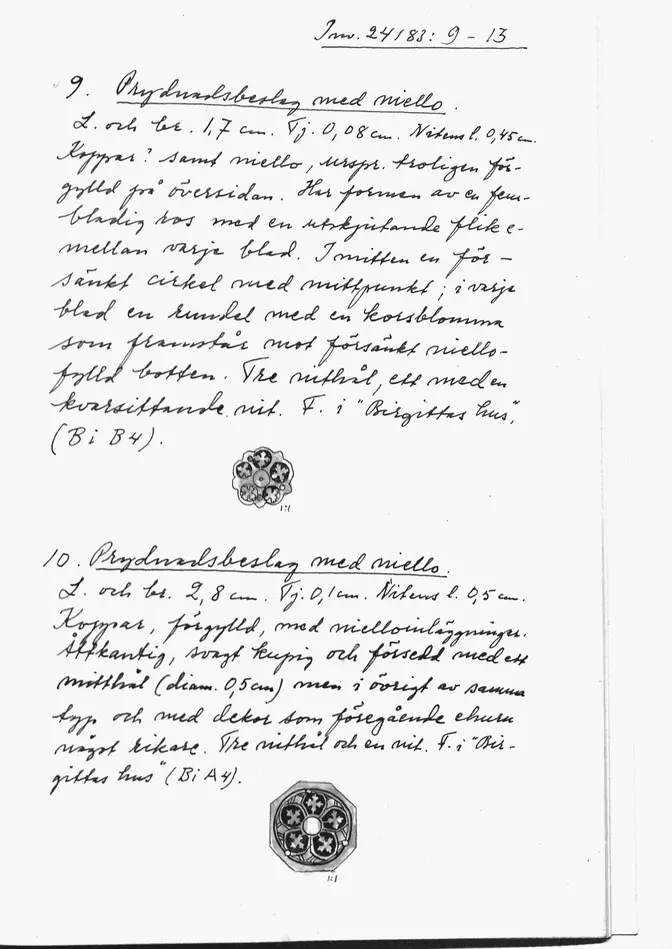 Inv. 24183: 9 - 13
9. Prydnadsbeslag med niello.
L. och br. 1,7 cm. Tj. 0,08 cm. Nitens l. 0,45 cm.
Koppar? samt niello, urspr. troligen för-
gylld på översidan. Har formen av en fem-
bladig ros med en utskjutande flik e-
mellan varje blad. I mitten en för-
sänkt cirkel med mittpunkt; i varje
blad en rundel med en korsblomma
som framstår mot försänkt niello-
fylld botten. Tre nithål, ett med en
kvarsittande nit. F. i "Birgittas hus",
(Bi B4).
1:1
10. Prydnadsbeslag med niello.
L. och br. 2,8 cm. Tj. 0,1 cm. Nitens l. 0,5 cm.
Koppar, förgylld, med nielloinläggningar.
Åttkantig, svagt kupig och försedd med ett
mitthål (diam. 0,5 cm) men i övrigt av samma
typ och med dekor som föregående ehuru
något rikare. Tre nithål och en nit. F. i "Bir-
gittas hus" (Bi A4).
1:1